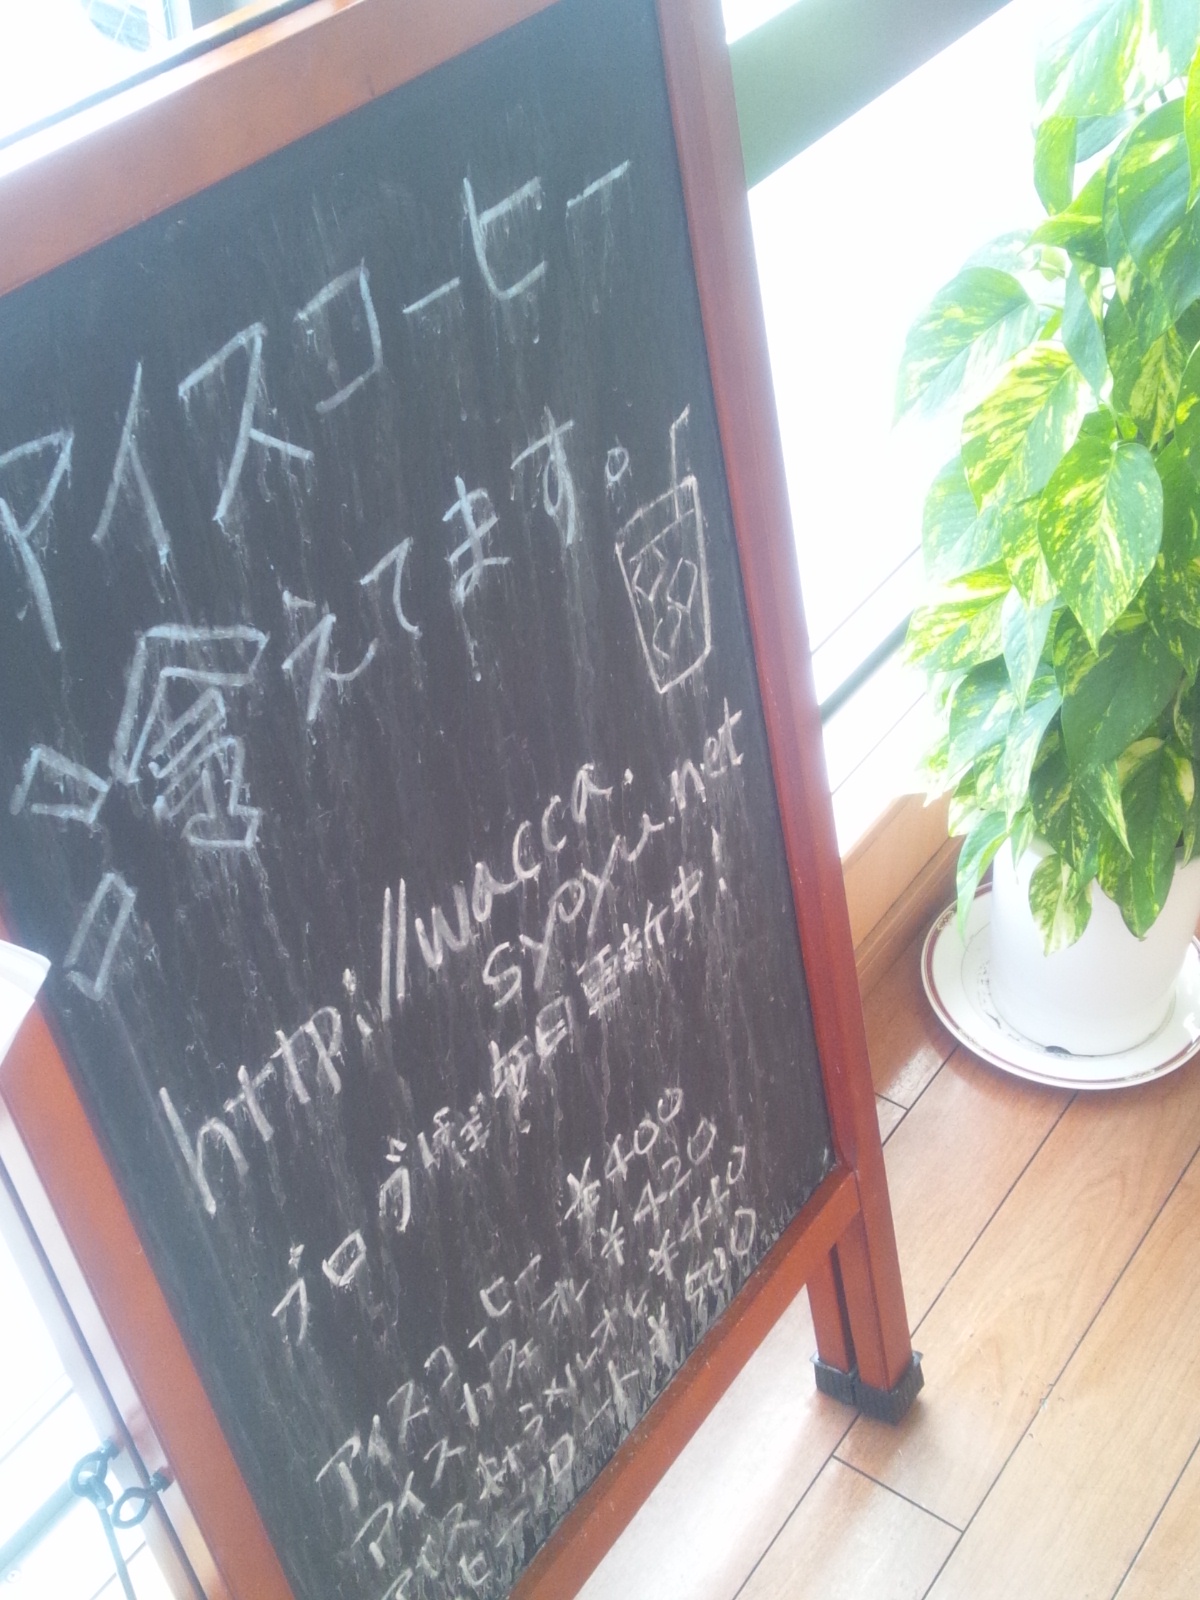 アイスコーヒー
冷えてます。
http://wacca.
syoyu.net
ブログほぼ毎日更新中!
アイスコーヒー ¥400
アイスカフェオレ ¥420
アイスキャラメルオレ ¥440
フロート ¥500